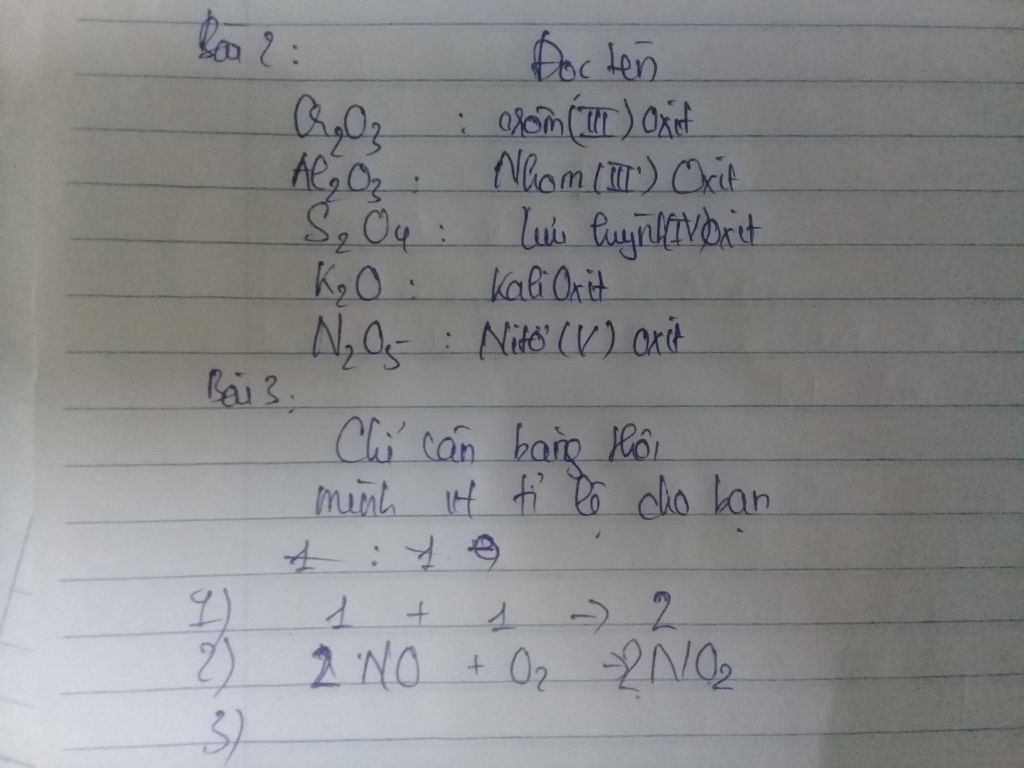 Bài 2: Đọc tên
Cr2O3 : crôm (III) Oxit
Al2O3 : Nhôm (III) Oxit
S2O4 : Lưu huỳnh (IV) Oxit
K2O : Kali Oxit
N2O5 : Nitơ (V) oxit
Bài 3:
Chỉ cân bằng thôi
mình vt tỉ lệ cho bạn
1 : 1
1) 1 + 1 -> 2
2) 2 NO + O2 -> 2NO2
3)